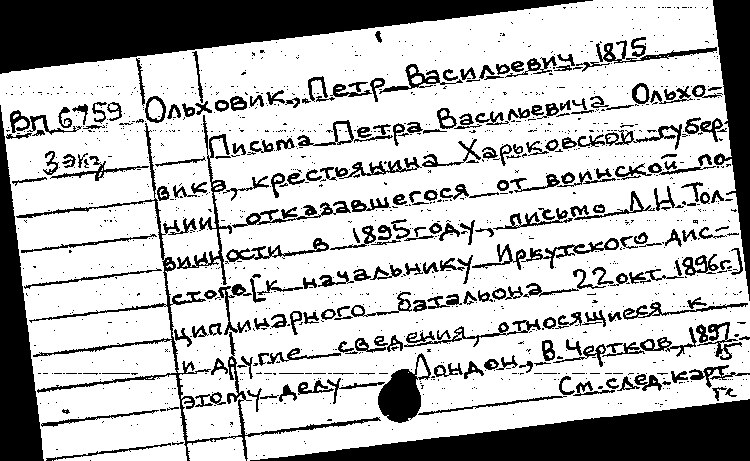 Вп 6759 Ольховик, Петр Васильевич, 1875
3 экз
Письма Петра Васильевича Ольхо-
вика, крестьянина Харьковской губер
нии, отказавшегося от воинской по
винности в 1895 году, письмо Л.Н. Тол-
стого [к начальнику Иркутского дис-
циплинарного батальона 22 окт. 1896 г.]
и другие сведения, относящиеся к
этому делу Лондон, В. Чертков, 1897.
См. след. карт.